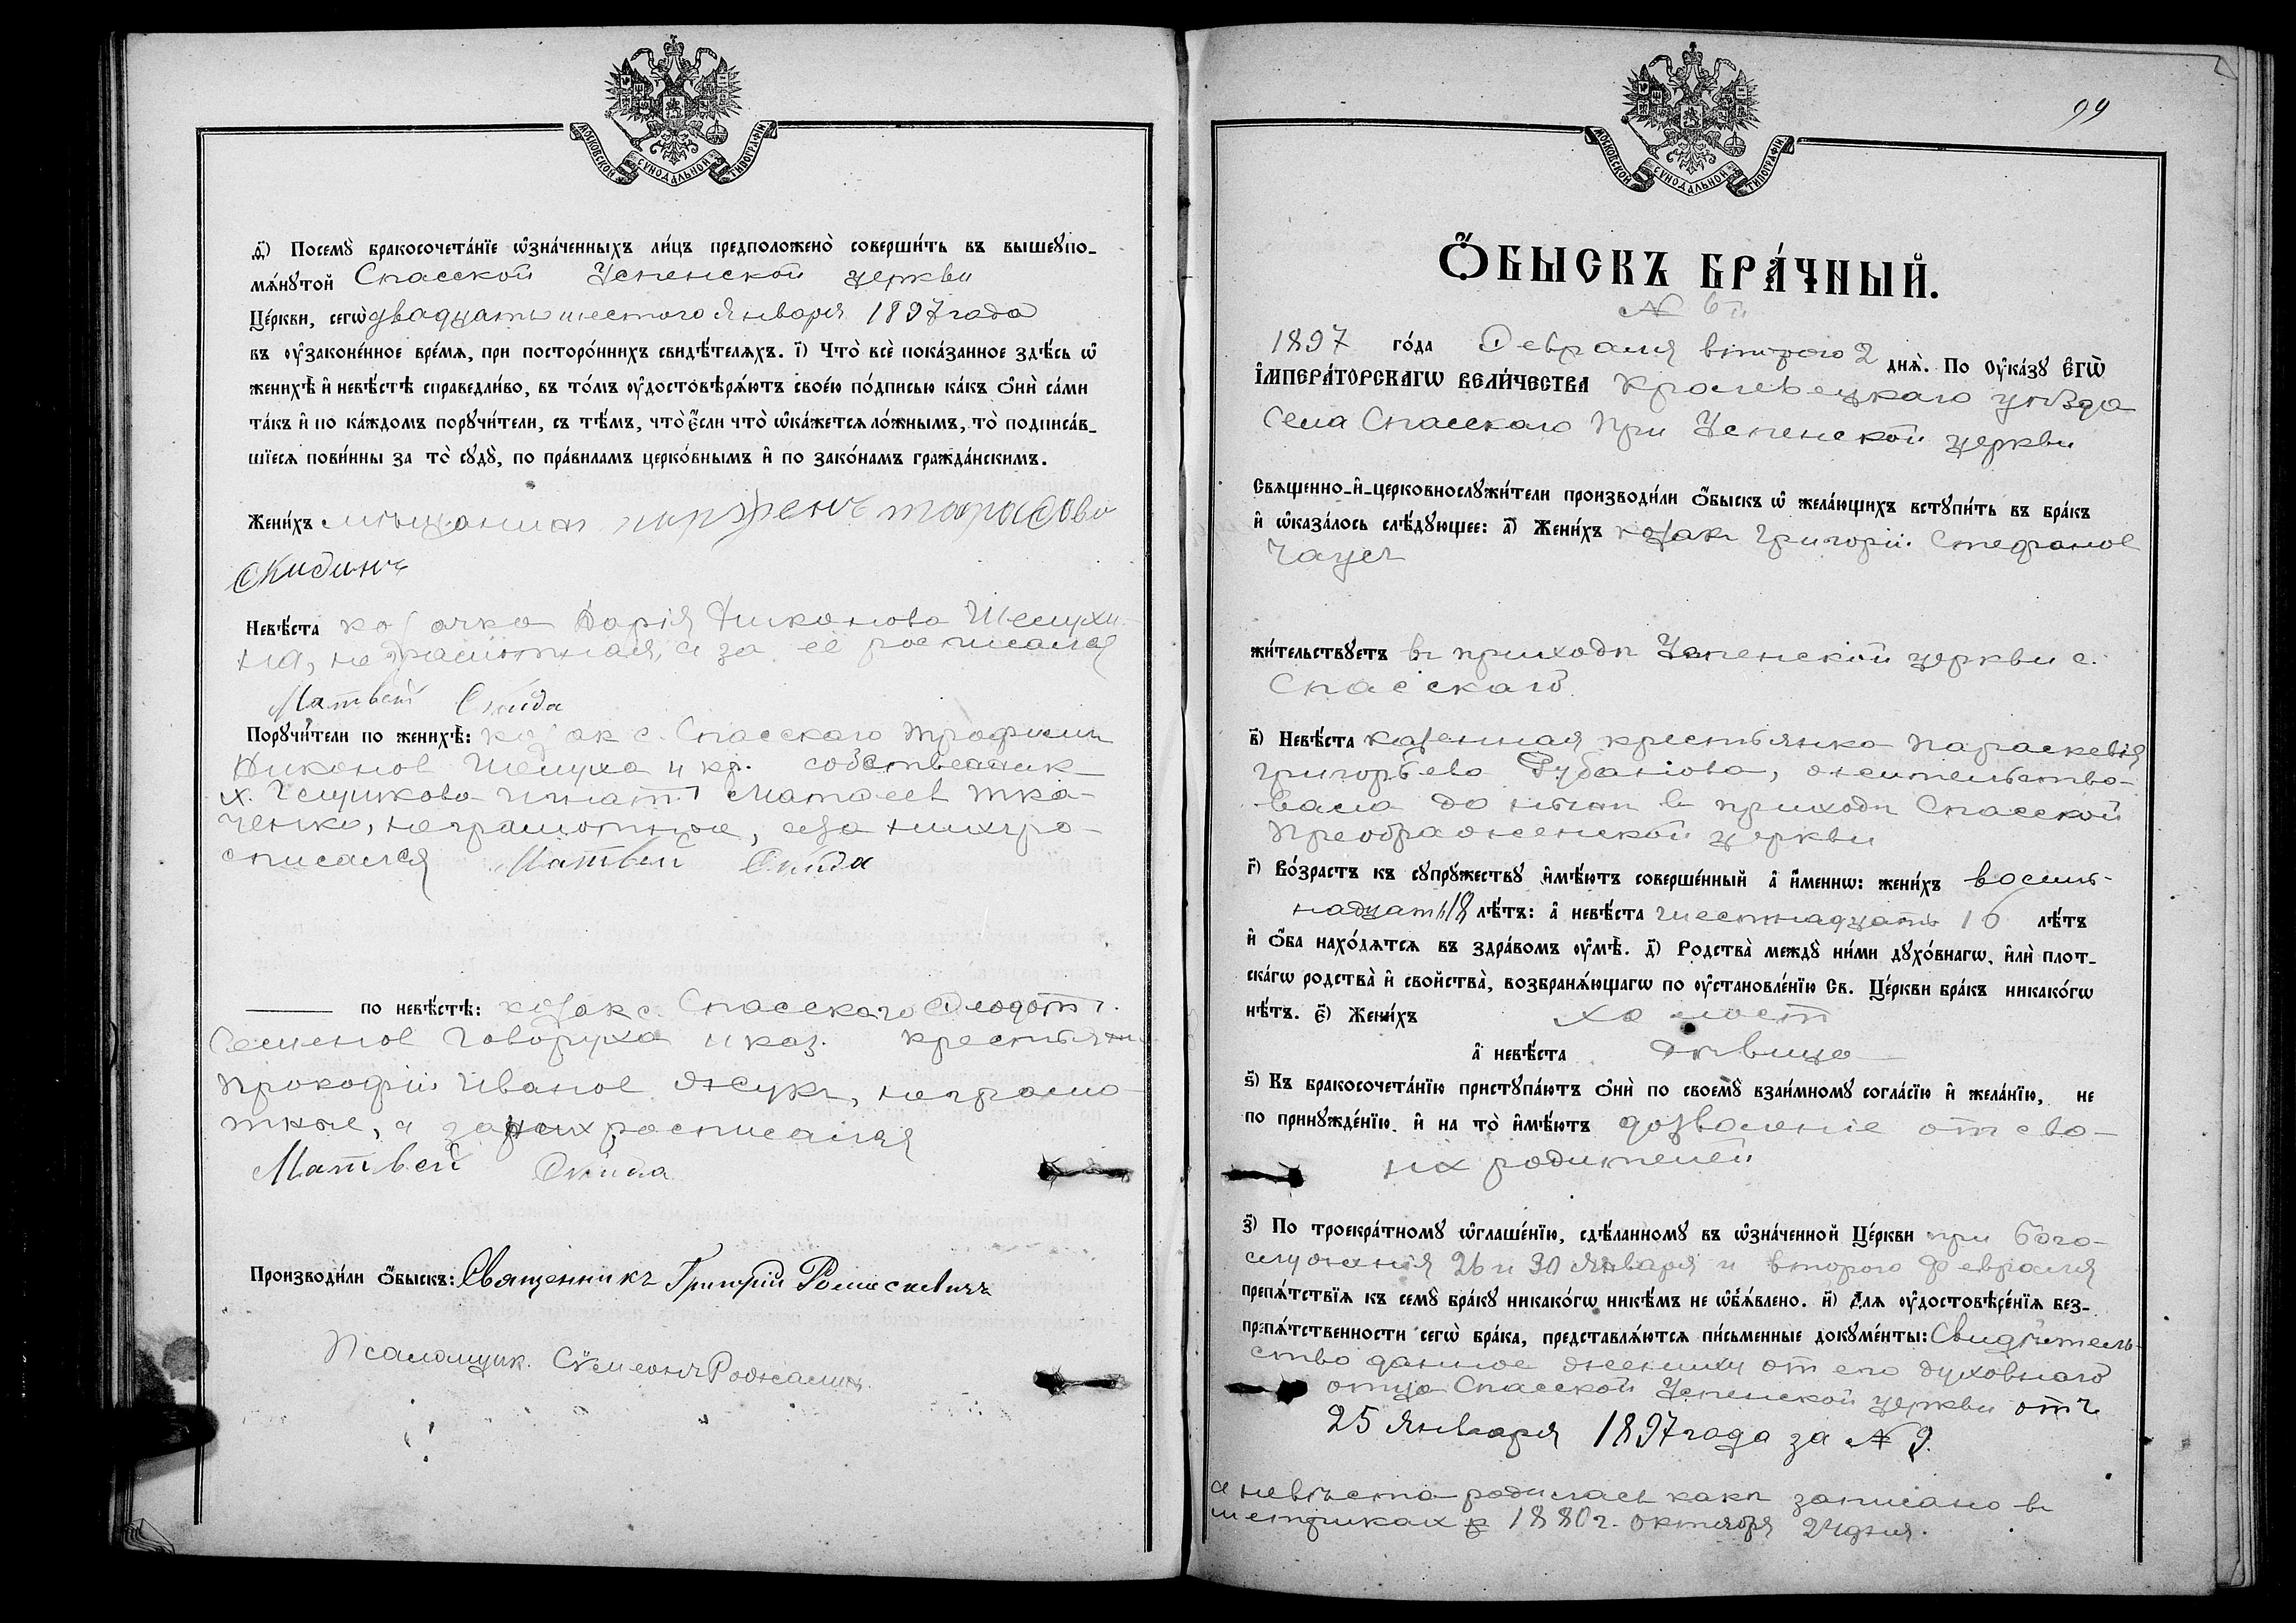 МОСКОВСКОЙ СѴНОДАЛЬНОЙ ТИПОГРАФІИ
д҃) Посемꙋ̀ бракосочета́нїе ѡ҆зна́ченныхъ ли́цъ предположено̀ соверши́ть въ вышеꙋпо-
мѧ́нꙋтой Спасской Успенской церкви
Це́ркви, сегѡ̀ двадцать шестого Января 1897 года
въ ᲂу҆зако́ненное вре́мѧ, при посторо́ннихъ свидѣ́телѧхъ. і҃) Что̀ всѐ пока́занное здѣ́сь ѡ҆
женихѣ̀ и҆ невѣ́стѣ справедли́во, въ то́мъ ᲂу҆достовѣрѧ́ютъ свое́ю по́дписью ка́къ ѻ҆нѝ са́ми
та́къ и҆ по ка́ждомъ порꙋчи́тели, съ тѣ́мъ, что̀ є҆́сли что̀ ѡ҆ка́жетсѧ ло́жнымъ, то̀ подписа́в-
шїесѧ пови́нны за то̀ сꙋдꙋ̀, по пра́виламъ церко́внымъ и҆ по зако́намъ гражда́нскимъ.
Жени́хъ мѣщанин парфенъ тарасовъ
Скидинъ
Невѣ́ста козачка Дарія Никонова Шелухи-
на, неграмотная, а за её росписался
Матвей Скида
Порꙋчи́тели по женихѣ̀: козак с. Спасского Трофим
Никонов Шелуха и кр. собственник
х. Игнат Матвеев Тка-
ченко, неграмотные, а за них ро-
списался Матвей Скида
по невѣ́стѣ: козак с. Спасского Федот
Семенов Говоруха и каз. крестьянин
Прокофій Иванов Жук, неграмо-
тные, а за них росписался
Матвей Скида
Производи́ли ѻ҆́быскъ: Священникъ Григорій Ромаскевичъ
Псаломщик. Сѵмеонъ
99
МОСКОВСКОЙ СѴНОДАЛЬНОЙ ТИПОГРАФІИ
Ѻ҆́БЫСКЪ БРА́ЧНЫЙ.
№ 6й
1897 го́да Февраля второго 2 днѧ̀. По ᲂу҆ка́зꙋ є҆гѡ̀
і҆мпера́торскагѡ вели́чества Кролевецкаго уѣзда
села Спасскаго при Успенской церкви
Свѧще́нно-и҆-церковнослꙋжи́тели производи́ли ѻ҆́быскъ ѡ҆ жела́ющихъ встꙋпи́ть въ бра́къ
и҆ ѡ҆каза́лось слѣ́дꙋющее: а҃) Жени́хъ козакъ Григорій Стефанов
Чаус
жи́тельствꙋетъ в приходѣ Успенской церкви с.
Спасскаго
в҃) Невѣ́ста казенная крестьянка Параскевія
Григорьева Рубанова, жительство-
вала до нынѣ в приходѣ Спасской
Преображенской церкви
г҃) Во́зрастъ къ сꙋпрꙋ́жествꙋ и҆мѣ́ютъ соверше́нный а҆ и҆́менѡ: жени́хъ восемь-
надцать 18 лѣ́тъ: а҆ невѣ́ста шестнадцать 16 лѣ́тъ
и҆ ѻ҆́ба нахо́дѧтсѧ въ здра́вомъ ᲂу҆мѣ̀. д҃) Родства̀ междꙋ̀ ни́ми дꙋхо́внагѡ, и҆лѝ плот-
ска́гѡ родства̀ и҆ свойства̀, возбранѧ́ющагѡ по ᲂу҆становле́нїю Св. Це́ркви бра́къ никако́гѡ
нѣ́тъ. є҃) Жени́хъ холост
а҆ невѣ́ста дѣвица
ѕ҃) Къ бракосочета́нїю пристꙋпа́ютъ ѻ҆нѝ по своемꙋ̀ взаи́мномꙋ согла́сїю и҆ жела́нїю, не
по принꙋжде́нїю. и҆ на то̀ и҆мѣ́ютъ дозволеніе от сво-
их родителей
з҃) По троекра́тномꙋ ѡ҆глаше́нїю, сдѣ́ланномꙋ въ ѡ҆зна́ченной Це́ркви при бого-
служенія 26 и 30 января и второго февраля
препѧ́тствїѧ къ семꙋ̀ бра́кꙋ никако́гѡ никѣ́мъ не ѡ҆б̾ѧ́влено. и҃) Длѧ ᲂу҆достовѣре́нїѧ без-
препѧ́тственности сегѡ̀ бра́ка, представлѧ́ютсѧ пи́сьменные докꙋме́нты: Свидѣтель-
ство данное жениху от его духовнаго
отца Спасской Успенской церкви отъ
25 Января 1897 года за № 9.
а невѣста родилась какъ записано в
метриках в 1880 г. октября 24 дня.